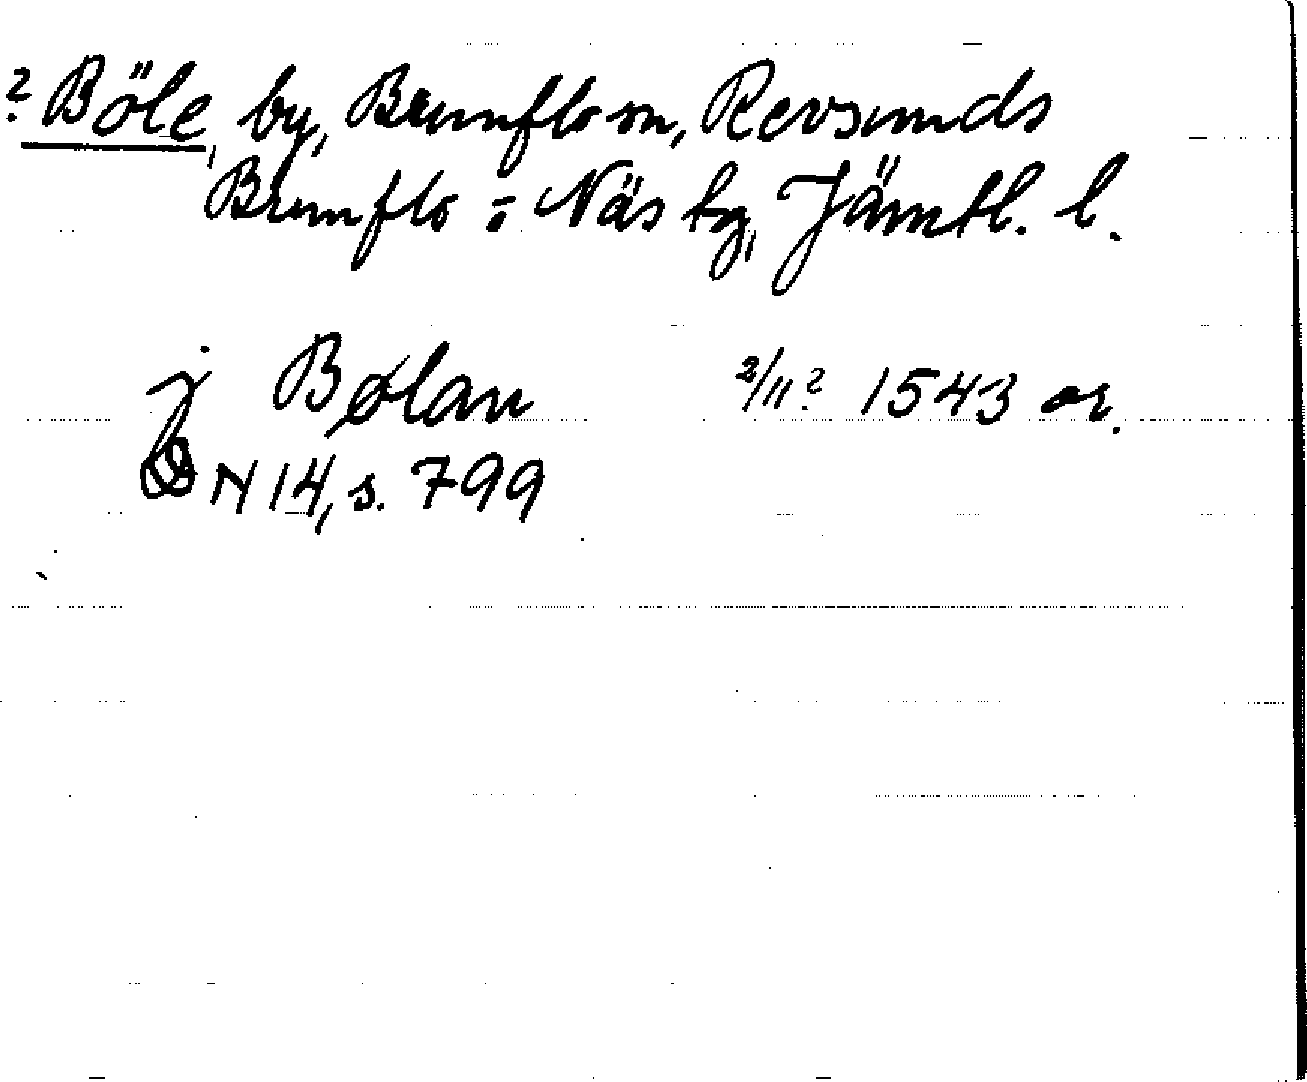 ? Böle, by, Brunflo sn, Revsunds
Brunflo o Näs tg, Jämtl. l.
j Bølan 2/11? 1543 or.
DN 14, s. 799